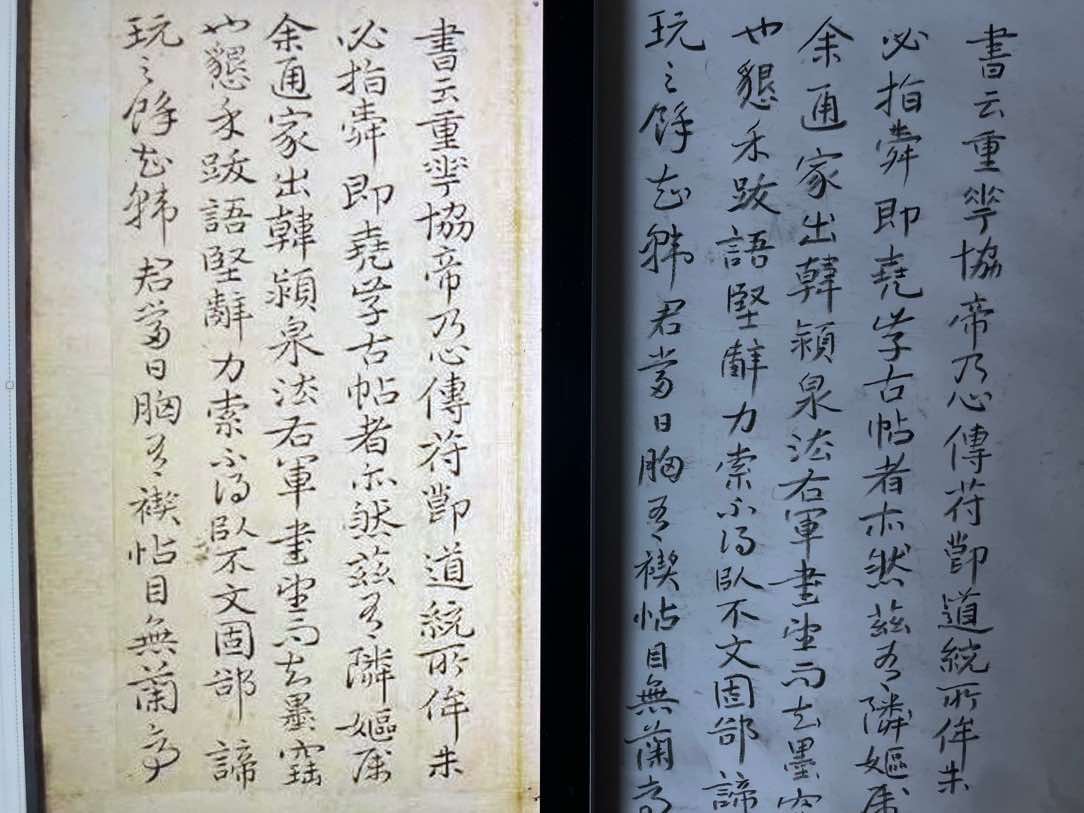 書云重華協帝乃心傳符節道統所侔未
必指舜即堯學古帖者亦然茲有隣嫗属
余通家出韓潁泉法右軍書望而知墨窟
也懇求跋語堅辭力索不得臥不文固鄙諦
玩之餘知韓君當日胸有禊帖目無蘭亭
書云重華協帝乃心傳符節道統所侔未
必指舜即堯學古帖者亦然茲有隣嫗属
余通家出韓潁泉法右軍書望而知墨窟
也懇求跋語堅辭力索不得臥不文固鄙諦
玩之餘知韓君當日胸有禊帖目無蘭亭